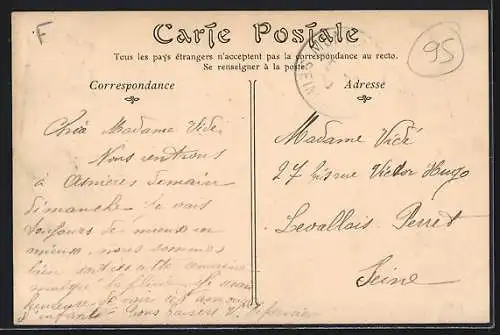 F
Carte Postale
95
Tous les pays étrangers n'acceptent pas la correspondance au recto.
Se renseigner à la poste.
Correspondance
Adresse
Madame Vidé
Nous rentrons
à Asnières demain
dimanche. Je vais
toujours de mieux en
mieux, nous sommes
bien cette semaine
malgré la
Madame Vidé
27 bis rue Victor Hugo
Levallois Perret
Seine